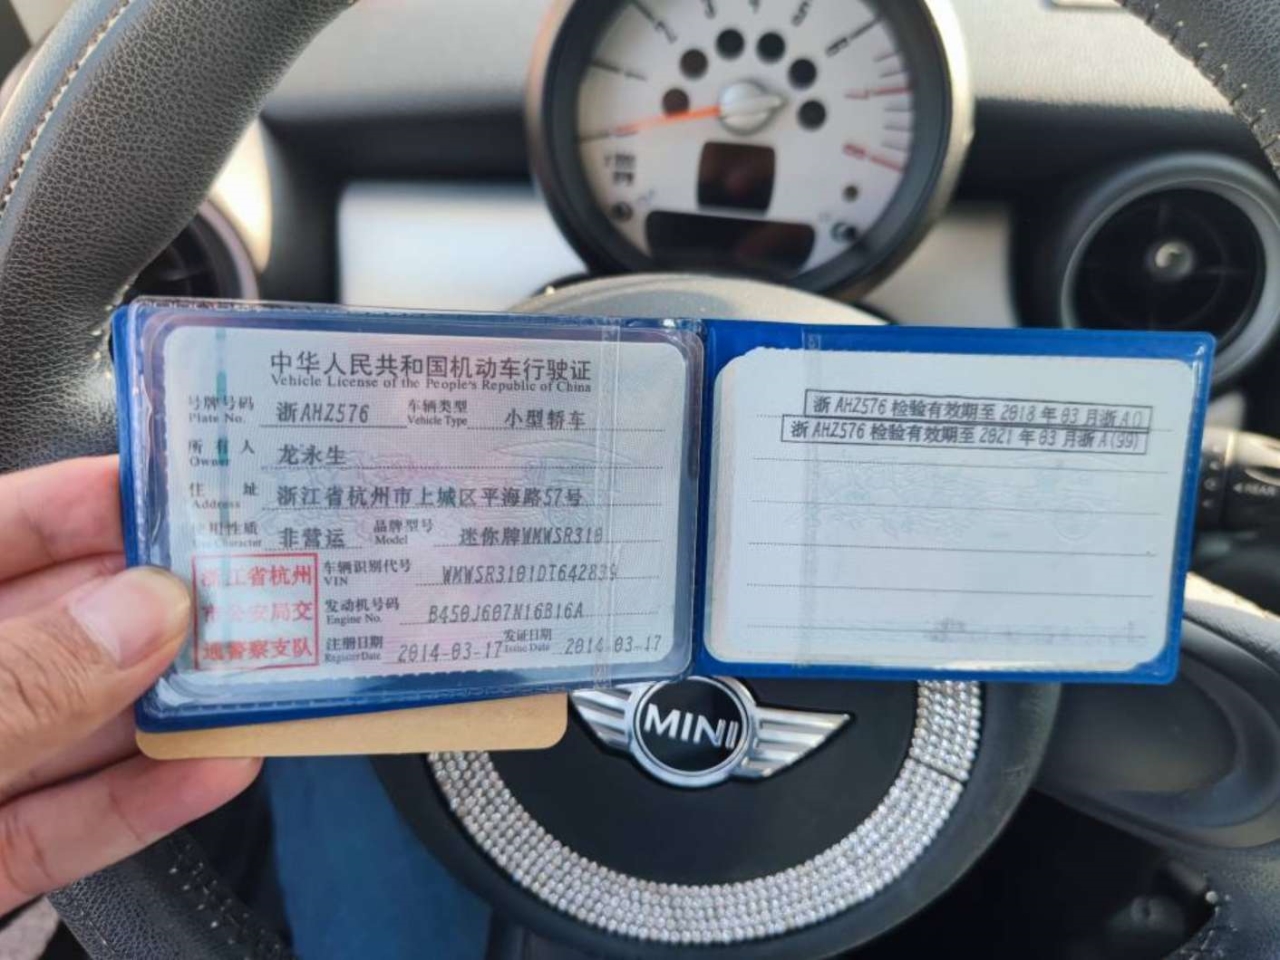 中华人民共和国机动车行驶证
Vehicle License of the People's Republic of China
号牌号码 浙AHZ576 车辆类型 小型轿车
Plate No. Vehicle Type
所有人 龙永生
Owner
住址 浙江省杭州市上城区平海路57号
Address
使用性质 非营运 品牌型号 迷你牌WMWSR310
Use Character Model
浙江省杭州
市公安局交
通警察支队
车辆识别代号 WMWSR3101DT642839
VIN
发动机号码 B450J607N16B16A
Engine No.
注册日期 2014-03-17 发证日期 2014-03-17
Register Date Issue Date
浙AHZ576 检验有效期至 2018 年 03 月浙A()
浙AHZ576 检验有效期至 2021 年 03 月浙A(99)
MINI
2
3
4
5
6
7
8